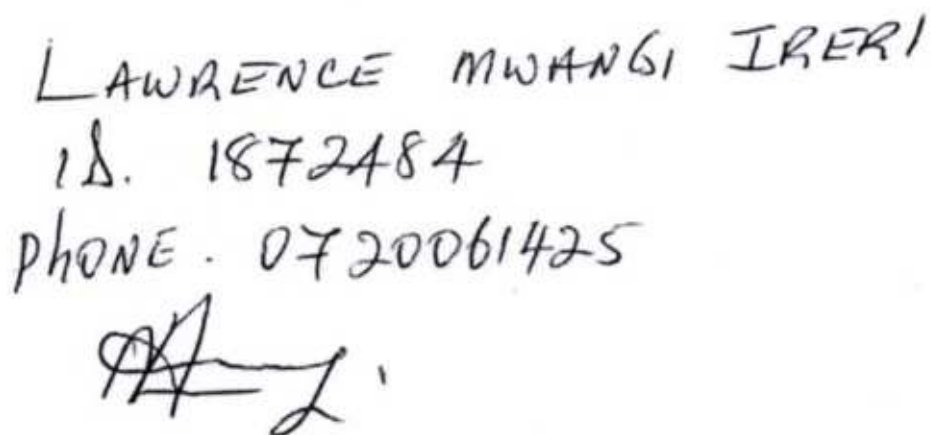 LAWRENCE MWANGI IRERI
ID. 1872484
PHONE. 0720061425